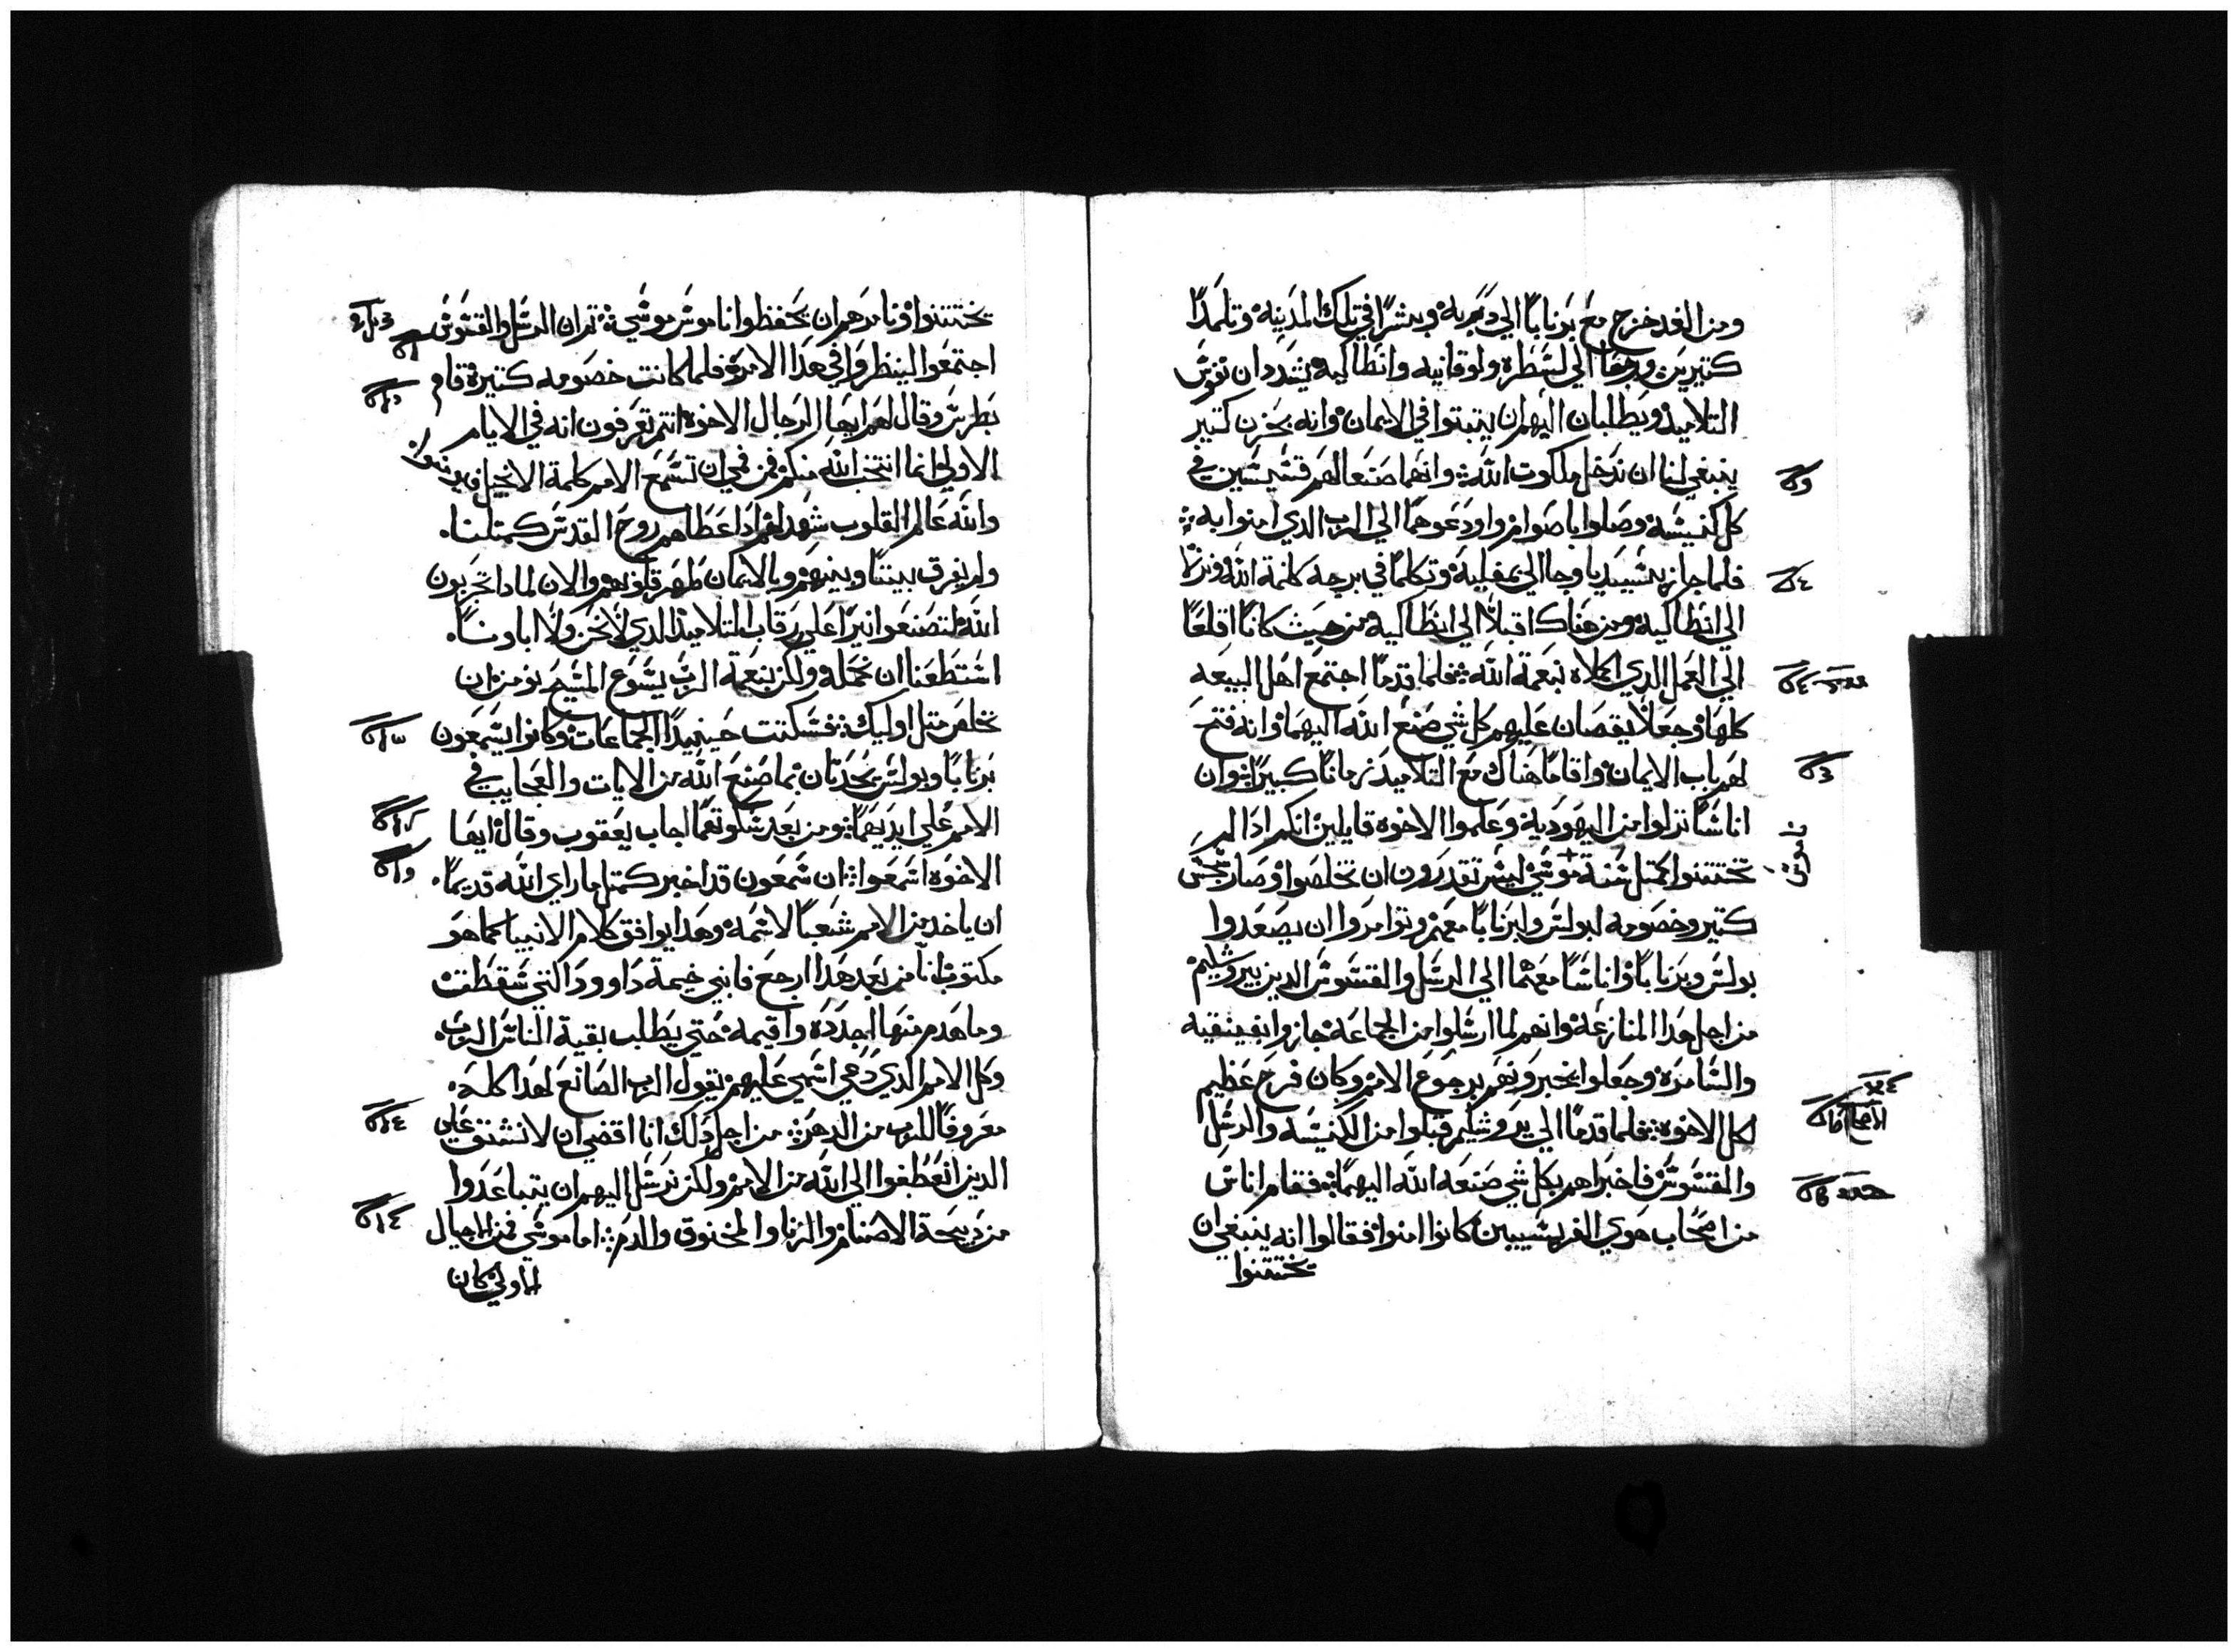 ومن الغد خرج مع برنابا الي دربه وبشرا في تلك المدينه وتلمدا
كتيرين ورجعا الي لسطره ولوقانيه وانطاكيه يشددان نفوس
التلاميد ويطلبان اليهم ان يتبتوا في الايمان وانه بحزن كتير
ينبغي لنا ان ندخل ملكوت الله وانهما صنعا لهم قسيسين في
كل كنيسه وصلوا باصوام واودعوهما الي الرب الدي امنوا به
فلما جاز بيسيديا وجا الي بمفيلية وتكلما في برجه كلمة الله ونزلا
الي انطاكيه ومن هناك اقبلا الي انطاكيه من حيث كانا اقلعا
الي العمل الدي اكملاه بنعمة الله فلما قدما اجتمع اهل البيعه
كلها وجعلا يقصان عليهم كل شي صنع الله اليهما وانه فتح
لهم باب الايمان واقاما هناك مع التلاميد زمانا كبيرا وان
اناسا نزلوا من اليهوديه وعلموا الاخوه قايلين انكم ادا لم
تختتنوا كمتل سنة موسي ليس تقدرون ان تخلصوا وصار سجس
ناموس
كتير وخصومه لبولس ولبرنابا معهم وتوامروا ان يصعدوا
بولس وبرنابا واناسا معهما الي الرسل والقسوس الدين بيروشليم
من اجل هدا المنازعه وانهم لما ارسلوا من الجماعه جازوا بفينيقيه
والسامره وجعلوا يخبرونهم برجوع الامم وكان فرح عظيم
لكل الاخوه فلما قدما الي يروشليم قبلوا من الكنيسه والرسل
والقسوس فاخبراهم بكل شي صنعه الله اليهما فقام اناس
من اصحاب هوي الفريسيين كانوا امنوا فقالوا انه ينبغي ان
يختتنوا
يختتنوا ونامرهم ان يحفظوا ناموس موسي ثم ان الرسل والقسوس
اجتمعوا لينظروا في هدا الامر فلما كانت خصومه كتيره قام
بطرس وقال لهم ايها الرجال الاخوه انتم تعرفون انه في الايام
الاولي انما انتخب الله منكم فمن فمي ان تسمع الامم كلمة الانجيل فيومنوا
والله عالم القلوب شهد لهم اد اعطاهم روح القدس كمتلنا
ولم يفرق بيننا وبينهم وبالايمان طهر قلوبهم والان لمادا تجربون
الله لتصنعوا نيرا علي رقاب التلاميد الدي لا نحن ولا اباونا
استطعنا ان نحمله ولكن بنعمة الرب يسوع المسيح نومن ان
نخلص متل اوليك فسكتت حينيدا الجماعات وكانوا يسمعون
برنابا وبولس يحدتان بما صنع الله من الايات والعجايب في
الامم علي ايديهما ومن بعد سكوتهما اجاب يعقوب وقال ايها
الاخوه اسمعوا ان شمعون قد اخبر كمتل ما راي الله قديما
ان ياخد من الامم شعبا لاسمه وهدا يوافق كلام الانبيا كما هو
مكتوب انا من بعد هدا ارجع فابني خيمة داوود التي سقطت
وما هدم منها اجدده واقيمه حتي يطلب بقية الناس الرب
وكل الامم الدي دعي اسمي عليهم يقول الرب الصانع لهدا كله
معروفا للرب من الدهر من اجل دلك انا اقضي ان لا نشق علي
الدين انعطفوا الي الله من الامم ولكن نرسل اليهم ان يتباعدوا
من دبيحة الاصنام والزنا والمخنوق والدم اما موسي فمن الاجيال
الاولي كان